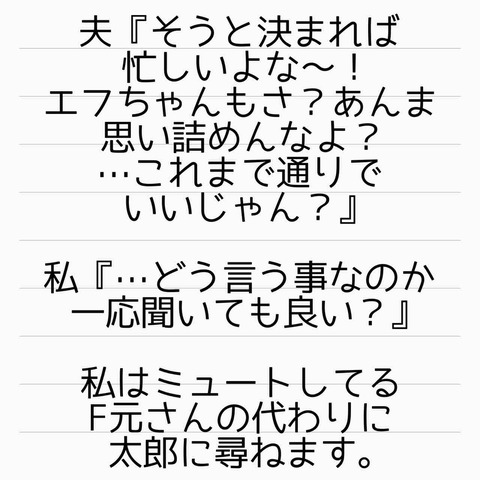 夫『そうと決まれば
忙しいよな〜！
エフちゃんもさ？あんま
思い詰めんなよ？
…これまで通りで
いいじゃん？』
私『…どう言う事なのか
一応聞いても良い？』
私はミュートしてる
F元さんの代わりに
太郎に尋ねます。